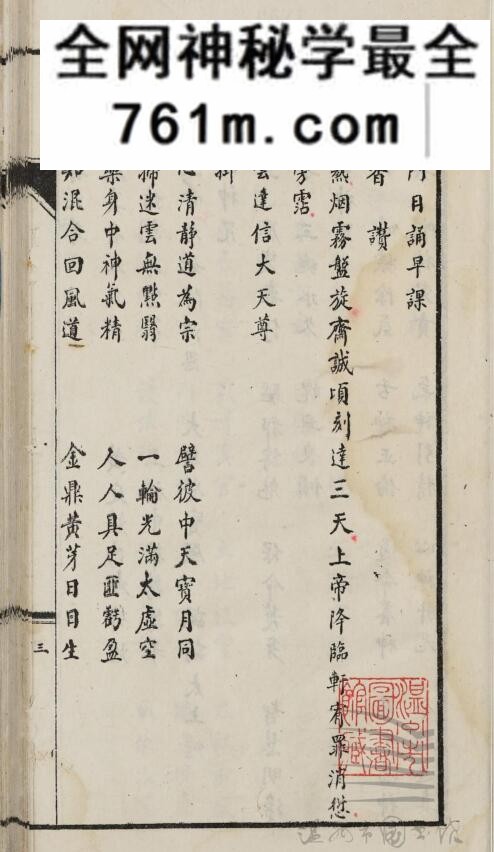 全网神秘学最全
761m.com
日誦早課
香 讚
烟霧盤旋齋誠頃刻達三天上帝降臨軒宥罪消愆
霑
達信大天尊
清静道為宗 譬彼中天寶月同
掃迷雲無點翳 一輪光滿太虛空
藥身中神氣精 人人具足匪虧盈
知混合回風道 金鼎黃芽日日生
三
温州市
圖書
館藏
温州市图书馆